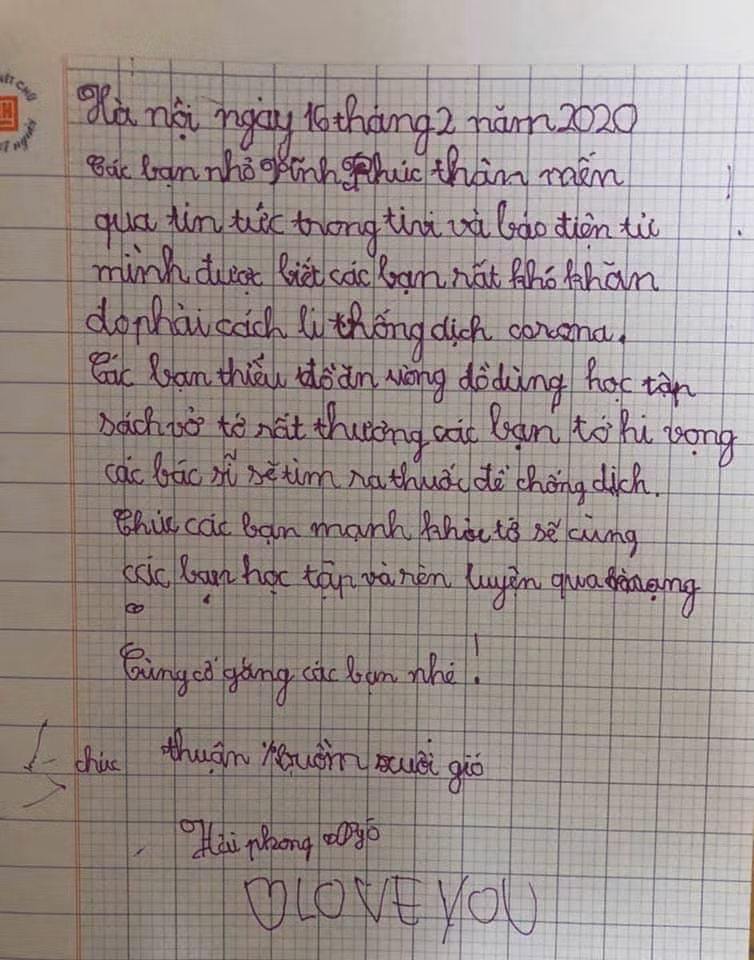 Hà nội ngày 16 tháng 2 năm 2020
Các bạn nhỏ Vĩnh Phúc thân mến
qua tin tức trong tivi và báo điện tử
mình được biết các bạn rất khó khăn
do phải cách li thống dịch corona.
Các bạn thiếu đồ ăn uống đồ dùng học tập
sách vở tớ rất thương các bạn tớ hi vọng
các bác sĩ sẽ tìm ra thuốc để chống dịch.
Chúc các bạn mạnh khỏe tớ sẽ cùng
các bạn học tập và rèn luyện qua mạng
Cùng cố gắng các bạn nhé!
chúc thuận buồm xuôi gió
Hải phong Ngô
LOVE YOU